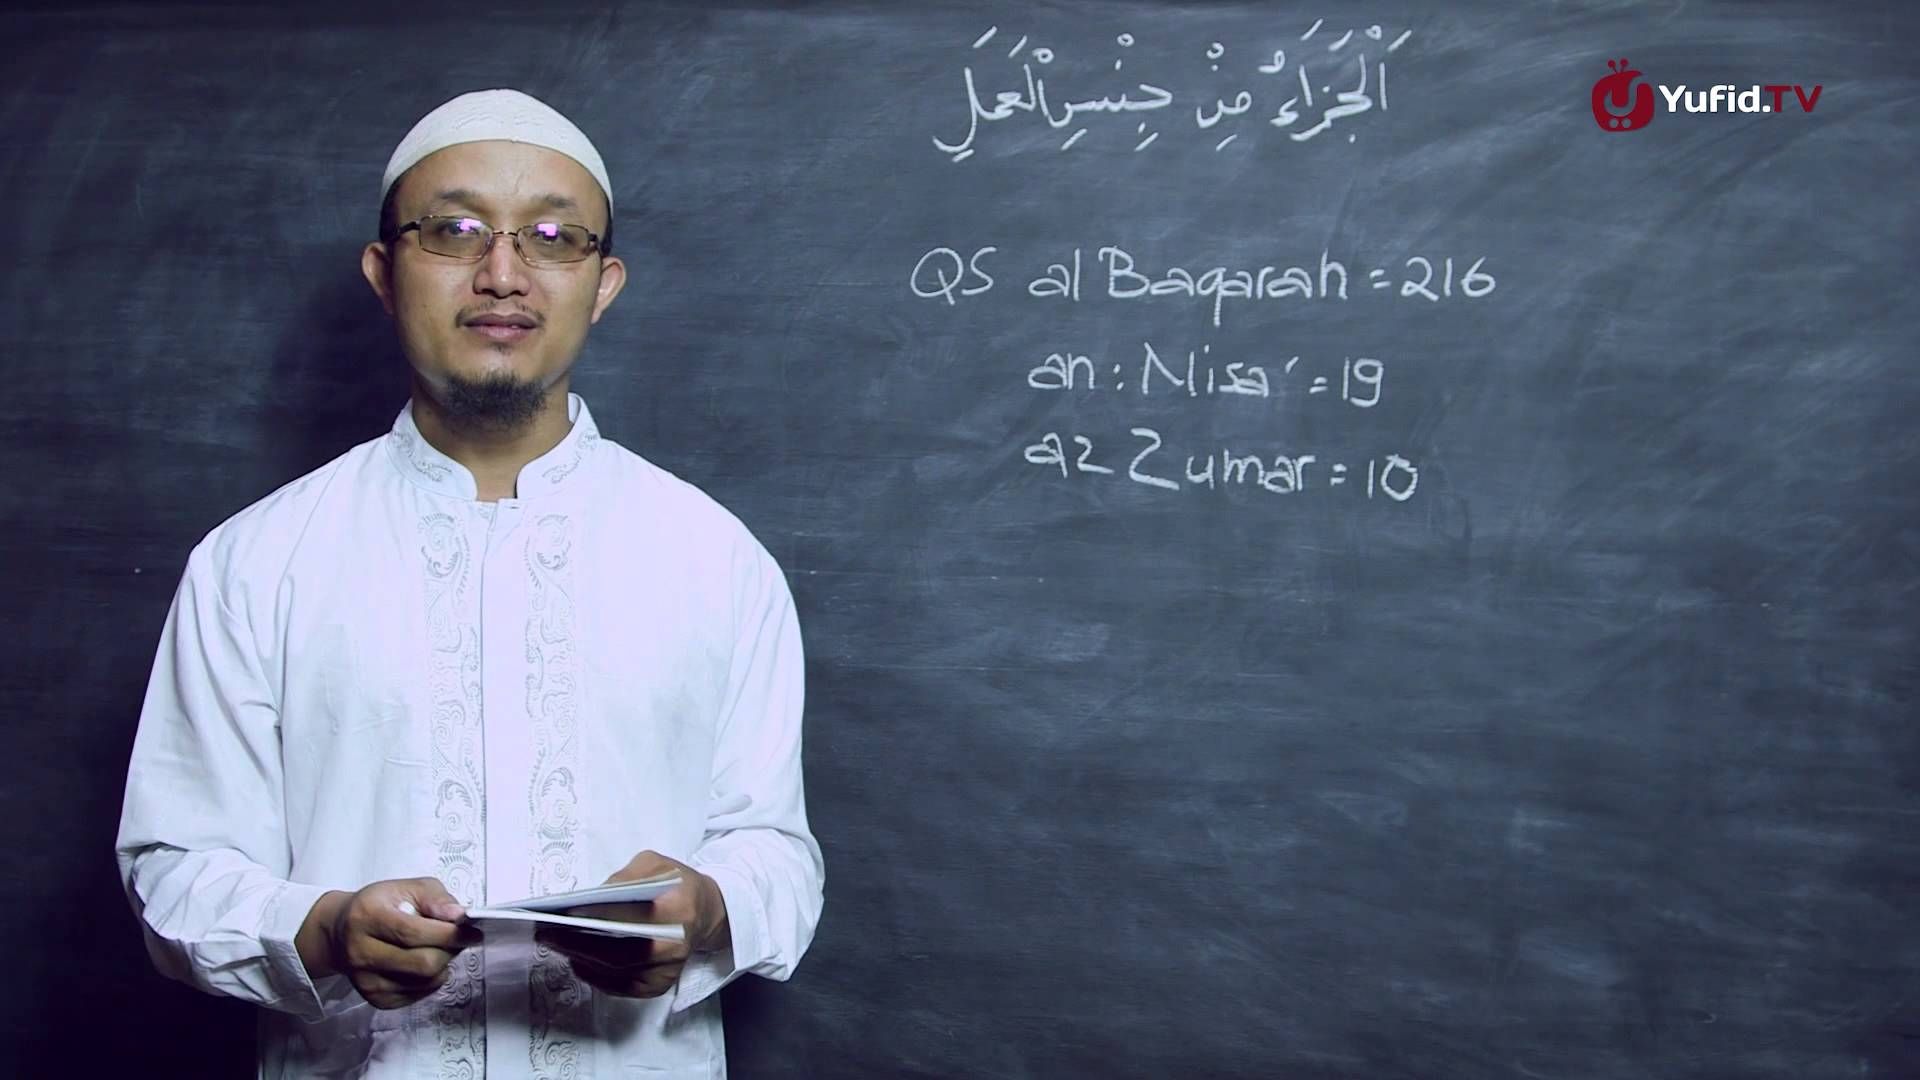 اَلْجَزَاءُ مِنْ جِنْسِ الْعَمَلِ
Yufid.TV
QS al Baqarah = 216
an : Nisa' = 19
az Zumar = 10